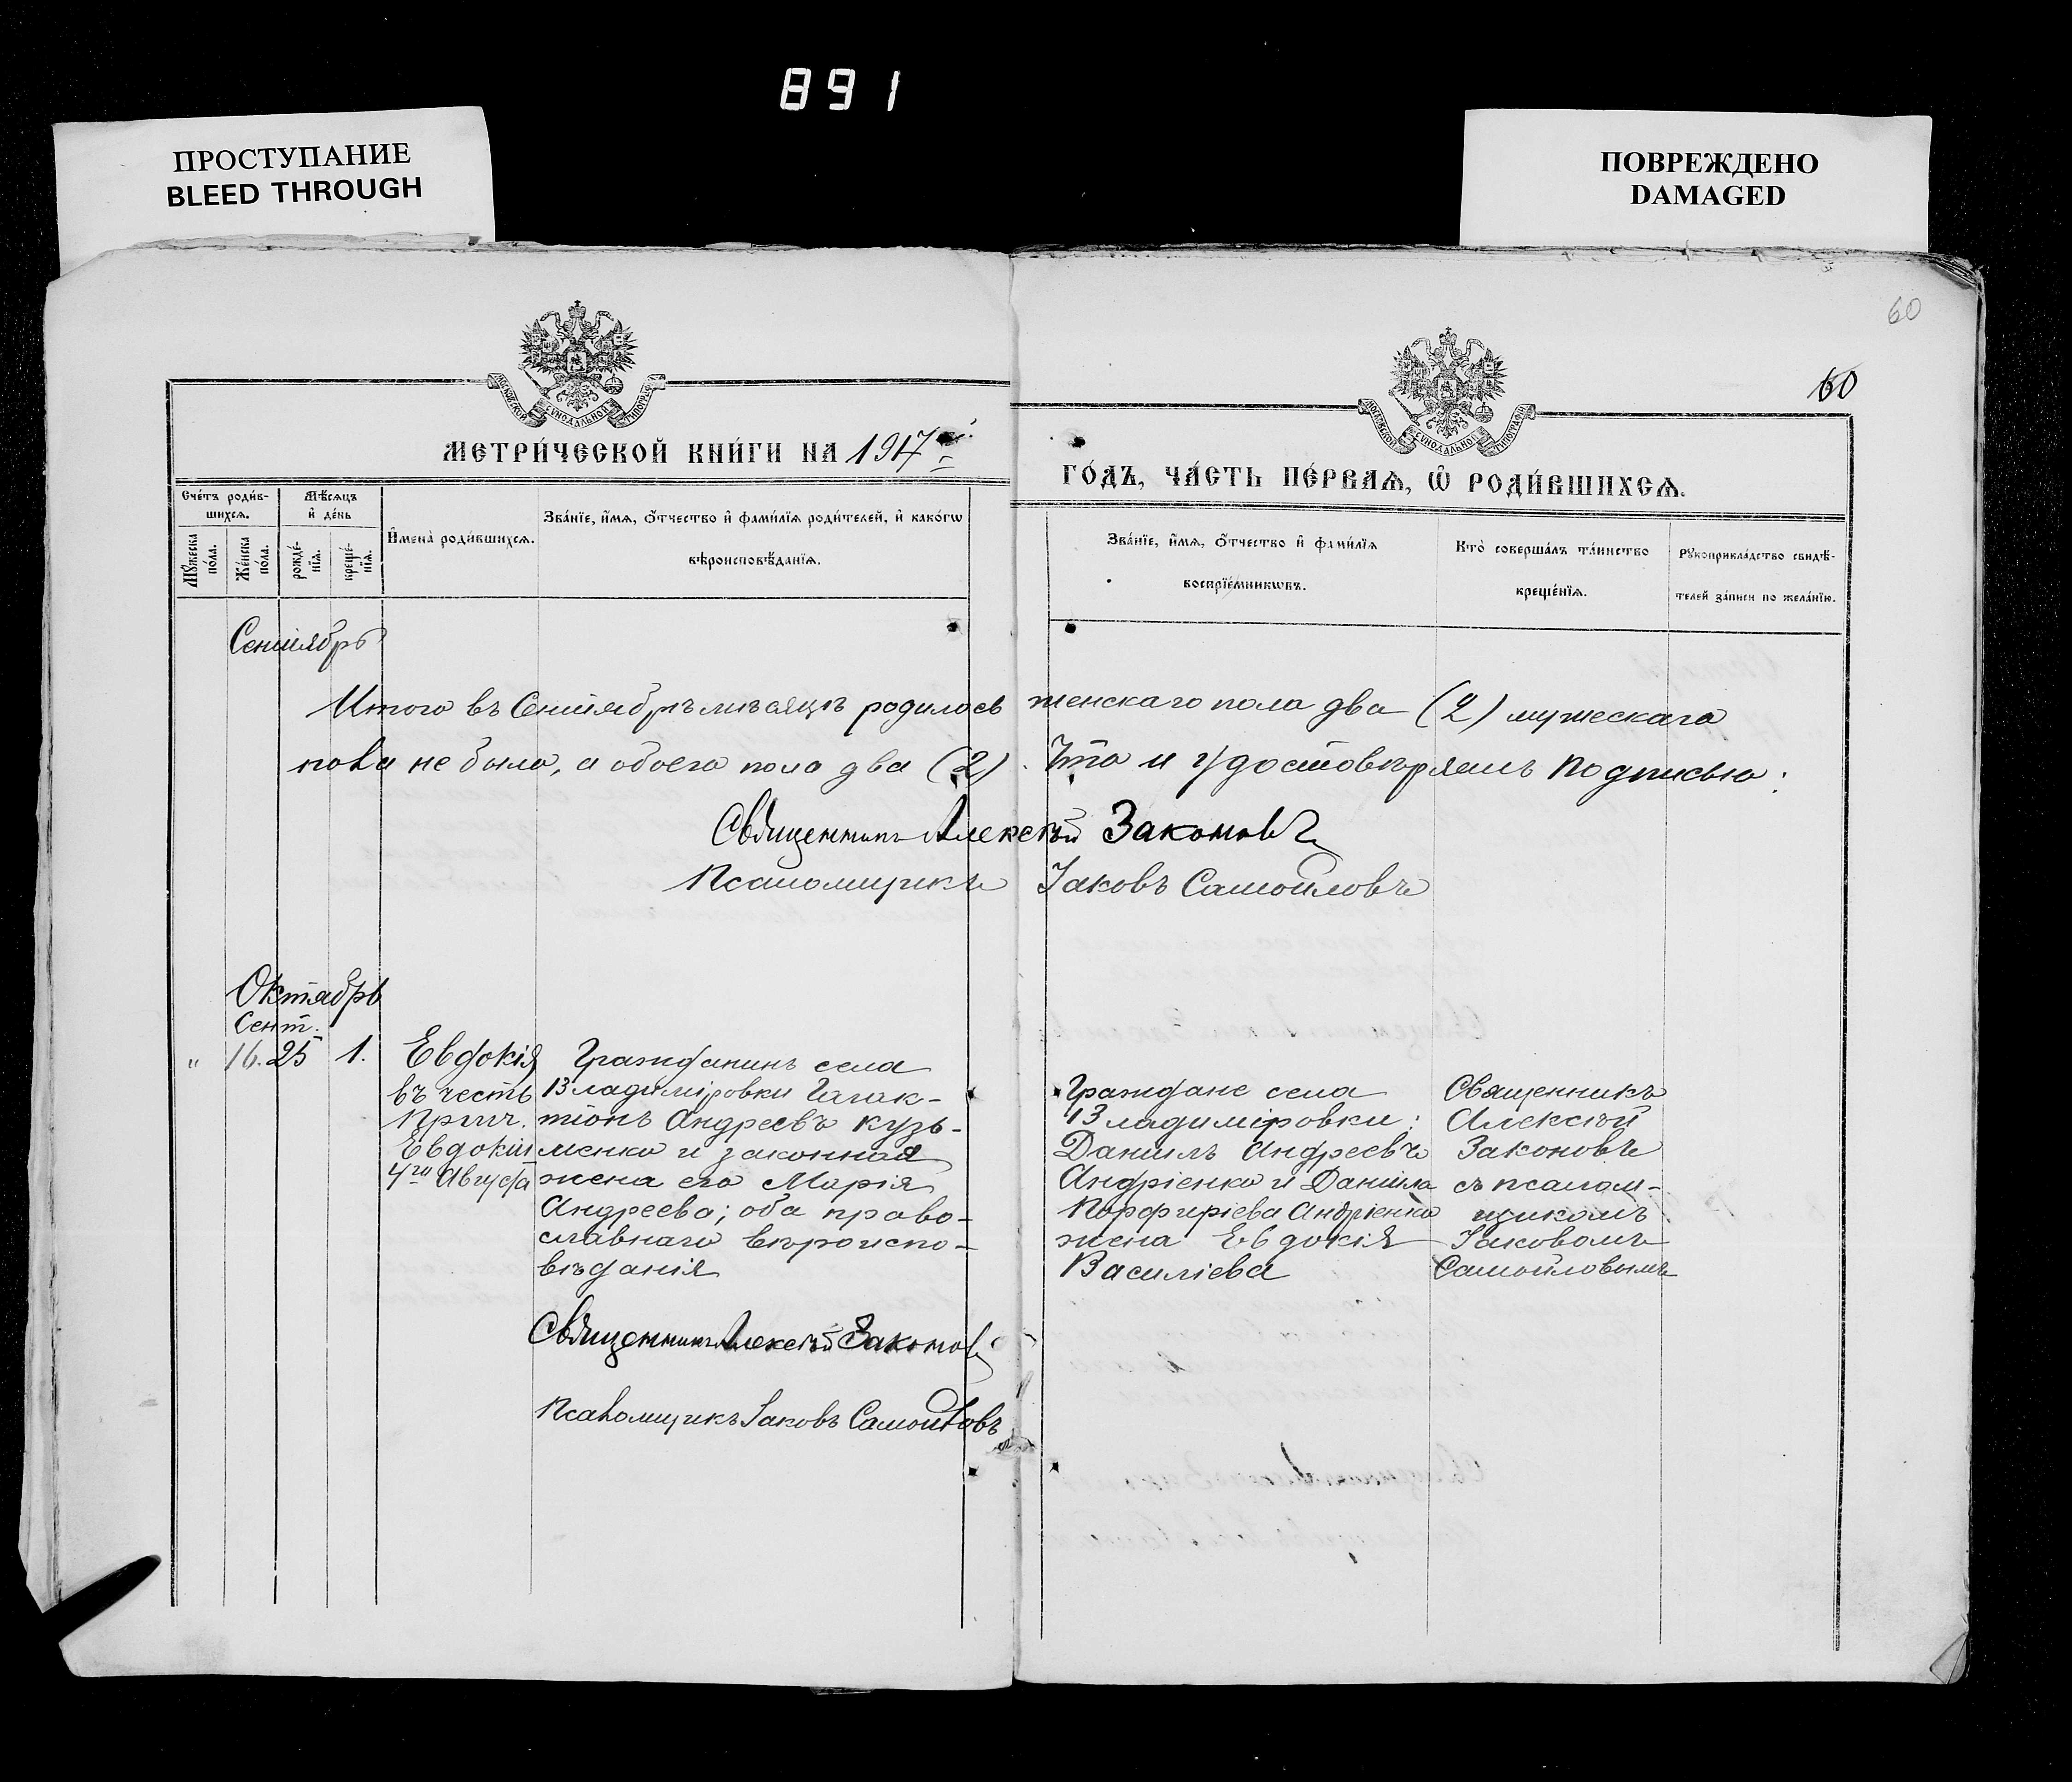 891
ПРОСТУПАНИЕ
BLEED THROUGH
ПОВРЕЖДЕНО
DAMAGED
60
60
МОСКОВСКОЙ СѴНОДАЛЬНОЙ ТИПОГРАФІИ
МОСКОВСКОЙ СѴНОДАЛЬНОЙ ТИПОГРАФІИ
МЕТРИ́ЧЕСКОЙ КНИ́ГИ НА 1917й
ГО́ДЪ, ЧА́СТЬ ПЕ́РВАѦ, Ѽ РОДИ́ВШИХСѦ.
Сче́тъ роди́в-
шихсѧ.
Мѣ́сѧцъ
и҆ де́нь
Мꙋ́жеска
по́ла.
Же́нска
по́ла.
рожде́-
нїѧ.
креще́-
нїѧ.
И҆мена̀ роди́вшихсѧ.
Зва́нїе, и҆́мѧ, о҆́тчество и҆ фами́лїѧ роди́телей, и҆ како́гѡ
вѣроисповѣ́данїѧ.
Зва́нїе, и҆́мѧ, о҆́тчество и҆ фами́лїѧ
воспрїе́мникѡвъ.
Кто̀ соверша́лъ та́инство
креще́нїѧ.
Рꙋкоприкла́дство свидѣ́-
телей за́писи по жела́нїю.
Сентябрь
Итого въ Сентябрѣ мѣсяцѣ родилось женскаго пола два (2) мужескаго
пола не было, а обоего пола два (2). Что и удостовѣряемъ подписью:
Священникъ Алексѣй Законовъ
Псаломщикъ Іаковъ Самойловъ
Октябрь
Сент.
" 16. 25 1.
Евдокія
въ честь
Прпч.
Евдокіи
4го Августа
Гражданинъ села
Владиміровки Галак-
тіонъ Андреевъ Кузь-
менко и законная
жена его Марія
Андреева; оба право-
славнаго вѣроиспо-
вѣданія
Граждане села
Владиміровки:
Даниилъ Андреевъ
Андріенко и Даніила
Порфиріева Андріенко
жена Евдокія
Василіева
Священникъ
Алексѣй
Законовъ
съ псалом-
щикомъ
Іаковомъ
Самойловымъ
Священникъ Алексѣй Законовъ
Псаломщикъ Іаковъ Самойловъ